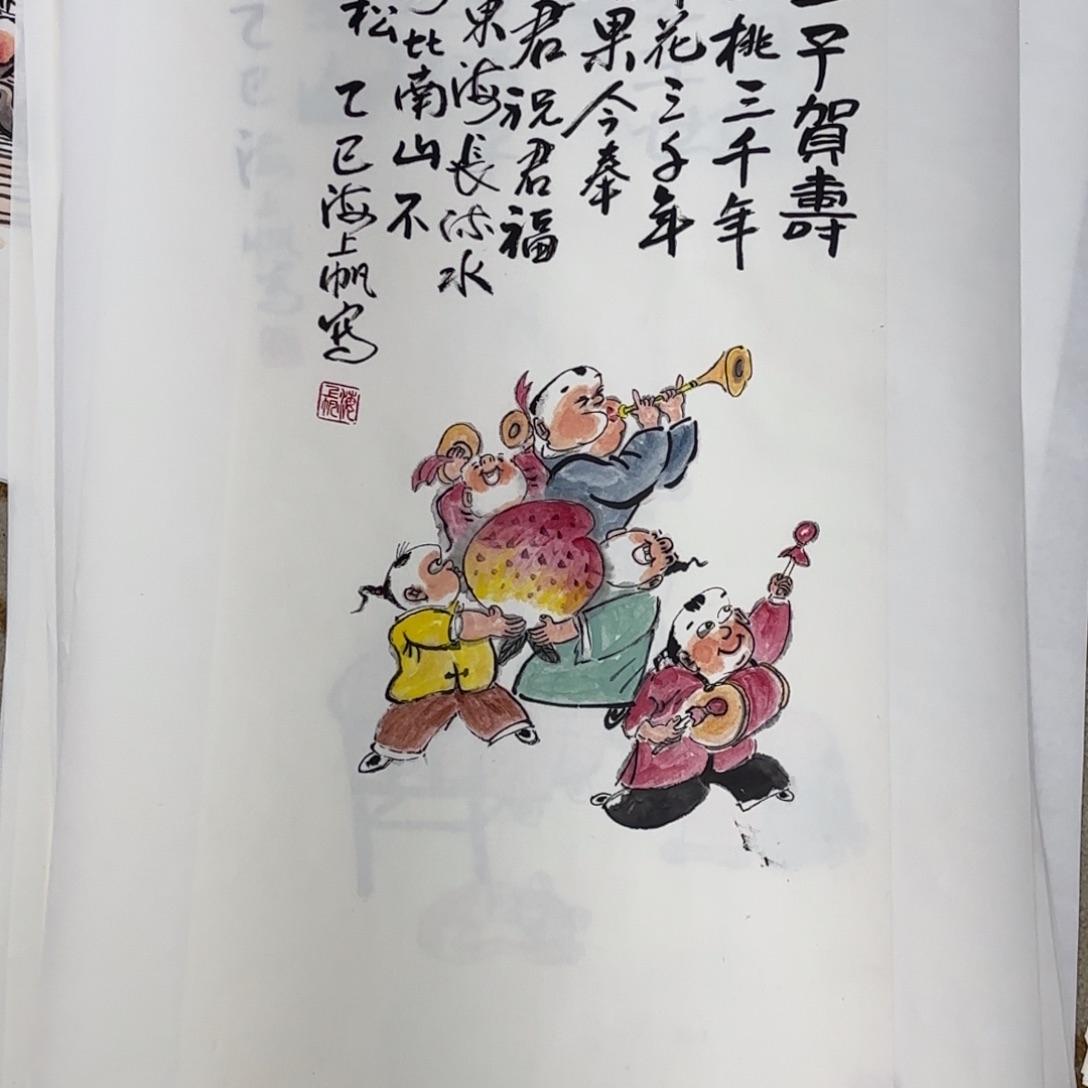 子賀壽
桃三千年
花三千年
果今奉
君祝君福
東海長流水
比南山不
松 乙巳海上帆寫